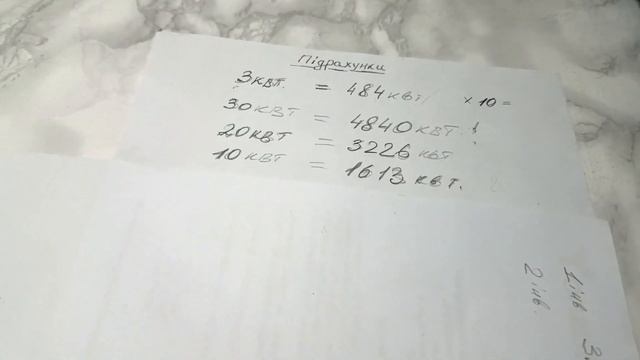 Підрахунки
3 квт. = 484 квт/ x 10 =
30 квт = 4840 квт !
20 квт = 3226 квт
10 квт = 1613 квт.
1 інв 3
2 інв.